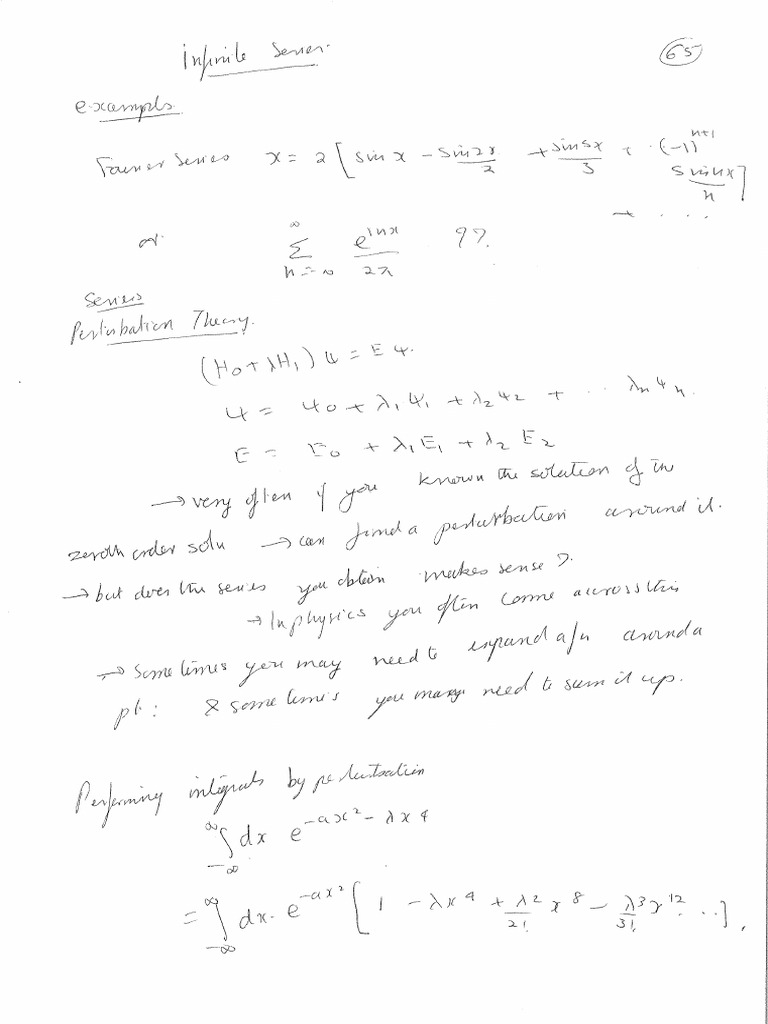 Infinite Series.
65
examples.
Fourier Series x = 2 [ sin x - sin2x/2 + sin5x/3 + ·(-1)^(n+1) sin nx/n ]
+ · · ·
or ∑_{n=-∞}^{∞} e^{inx}/2π ??
Series
Perturbation Theory.
(H0 + λH1) ψ = E ψ.
ψ = ψ0 + λ1 ψ1 + λ2 ψ2 + ·· λn ψn.
E = E0 + λ1 E1 + λ2 E2
→ very often if you known the solution of the
zeroth order soln → can find a perturbation around it.
→ but does the series you obtain makes sense ?
→ In physics you often come accross this
→ Sometimes you may need to expand a fn around a
pt: & sometimes you may need to sum it up.
Performing integrals by perturbation
∫_{-∞}^{∞} dx e^{-ax² - λx⁴}
= ∫_{-∞}^{∞} dx. e^{-ax²} [ 1 - λx⁴ + λ²/2! x⁸ - λ³/3! x¹² · ··],